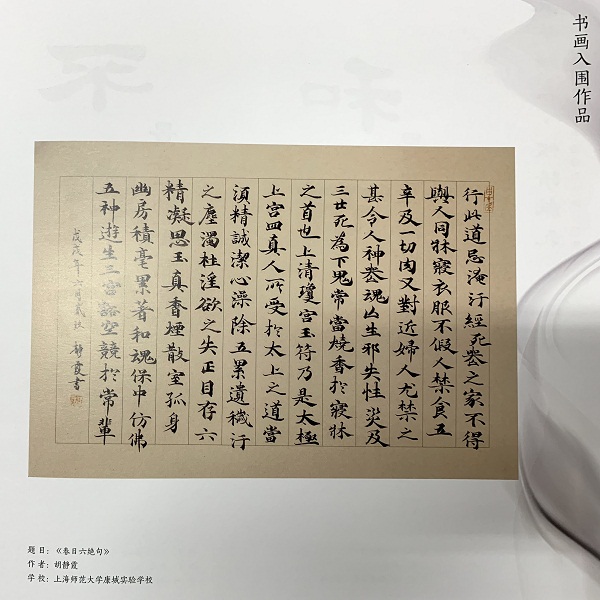 书画入围作品
行此道忌淹汙經死喪之家不得
與人同牀寢衣服不假人禁食五
辛及一切肉又對近婦人尤禁之
甚令人神喪魂亾生邪失性災及
三世死為下鬼常當燒香扵寢牀
之首也上清瓊宮玉符乃是太極
上宮四真人所受扵太上之道當
須精誠潔心澡除五累遺穢汙
之塵濁杜淫欲之失正目存六
精凝思玉真香煙散室孤身
幽房積毫累著和魂保中仿佛
五神遊生三宮豁空競扵常輩
戊戌年六月 靜霞書
题目：《春日六绝句》
作者：胡静霞
学校：上海师范大学康城实验学校